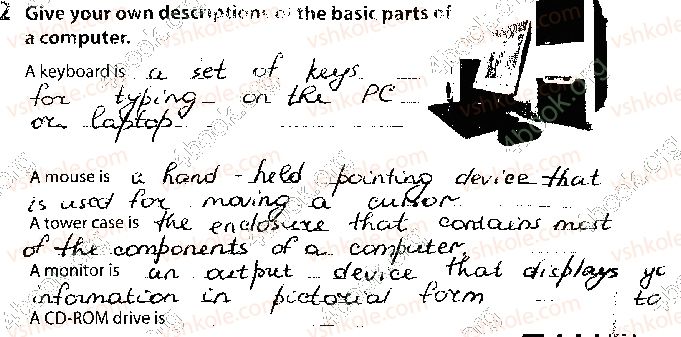 2 Give your own descriptions of the basic parts of
a computer.
A keyboard is a set of keys
for typing on the PC
or laptop
A mouse is a hand-held pointing device that
is used for moving a cursor
A tower case is the enclosure that contains most
of the components of a computer.
A monitor is an output device that displays
information in pictorial form to
A CD-ROM drive is
vshkole.com
4book.org